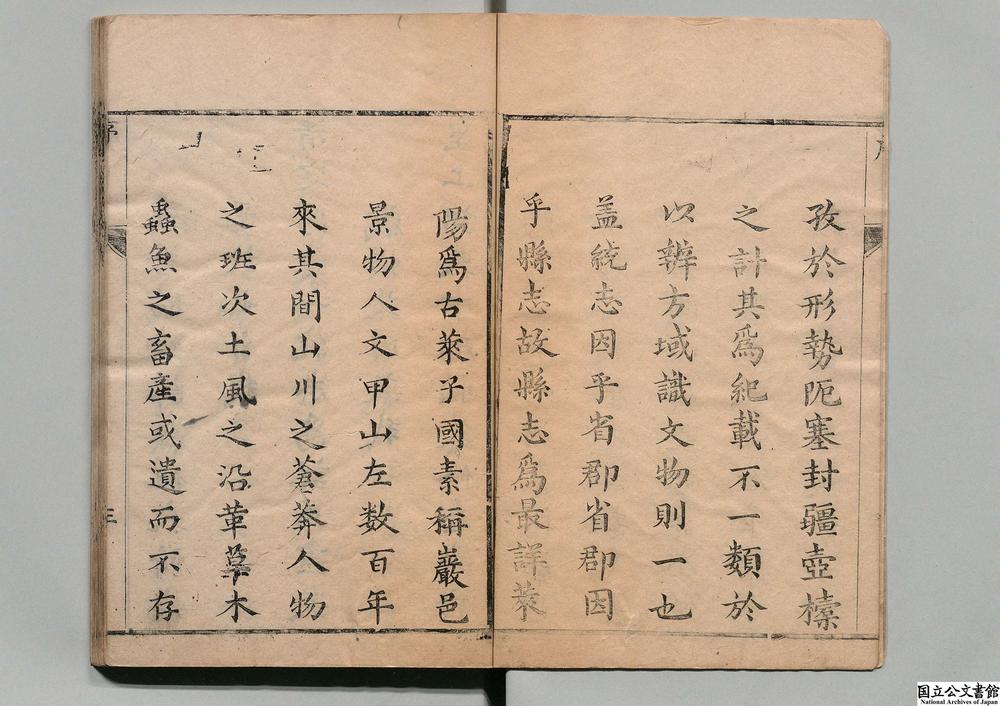 孜於形勢阨塞封疆壺㯱
之計其爲紀載不一類於
以辨方域識文物則一也
盖統志因乎省郡省郡因
乎縣志故縣志爲最詳萊
陽爲古萊子國素稱巖邑
景物人文甲山左数百年
來其間山川之蒼莽人物
之班次土風之沿革草木
蟲魚之畜產或遺而不存
序
三
国立公文書館
National Archives of Japan